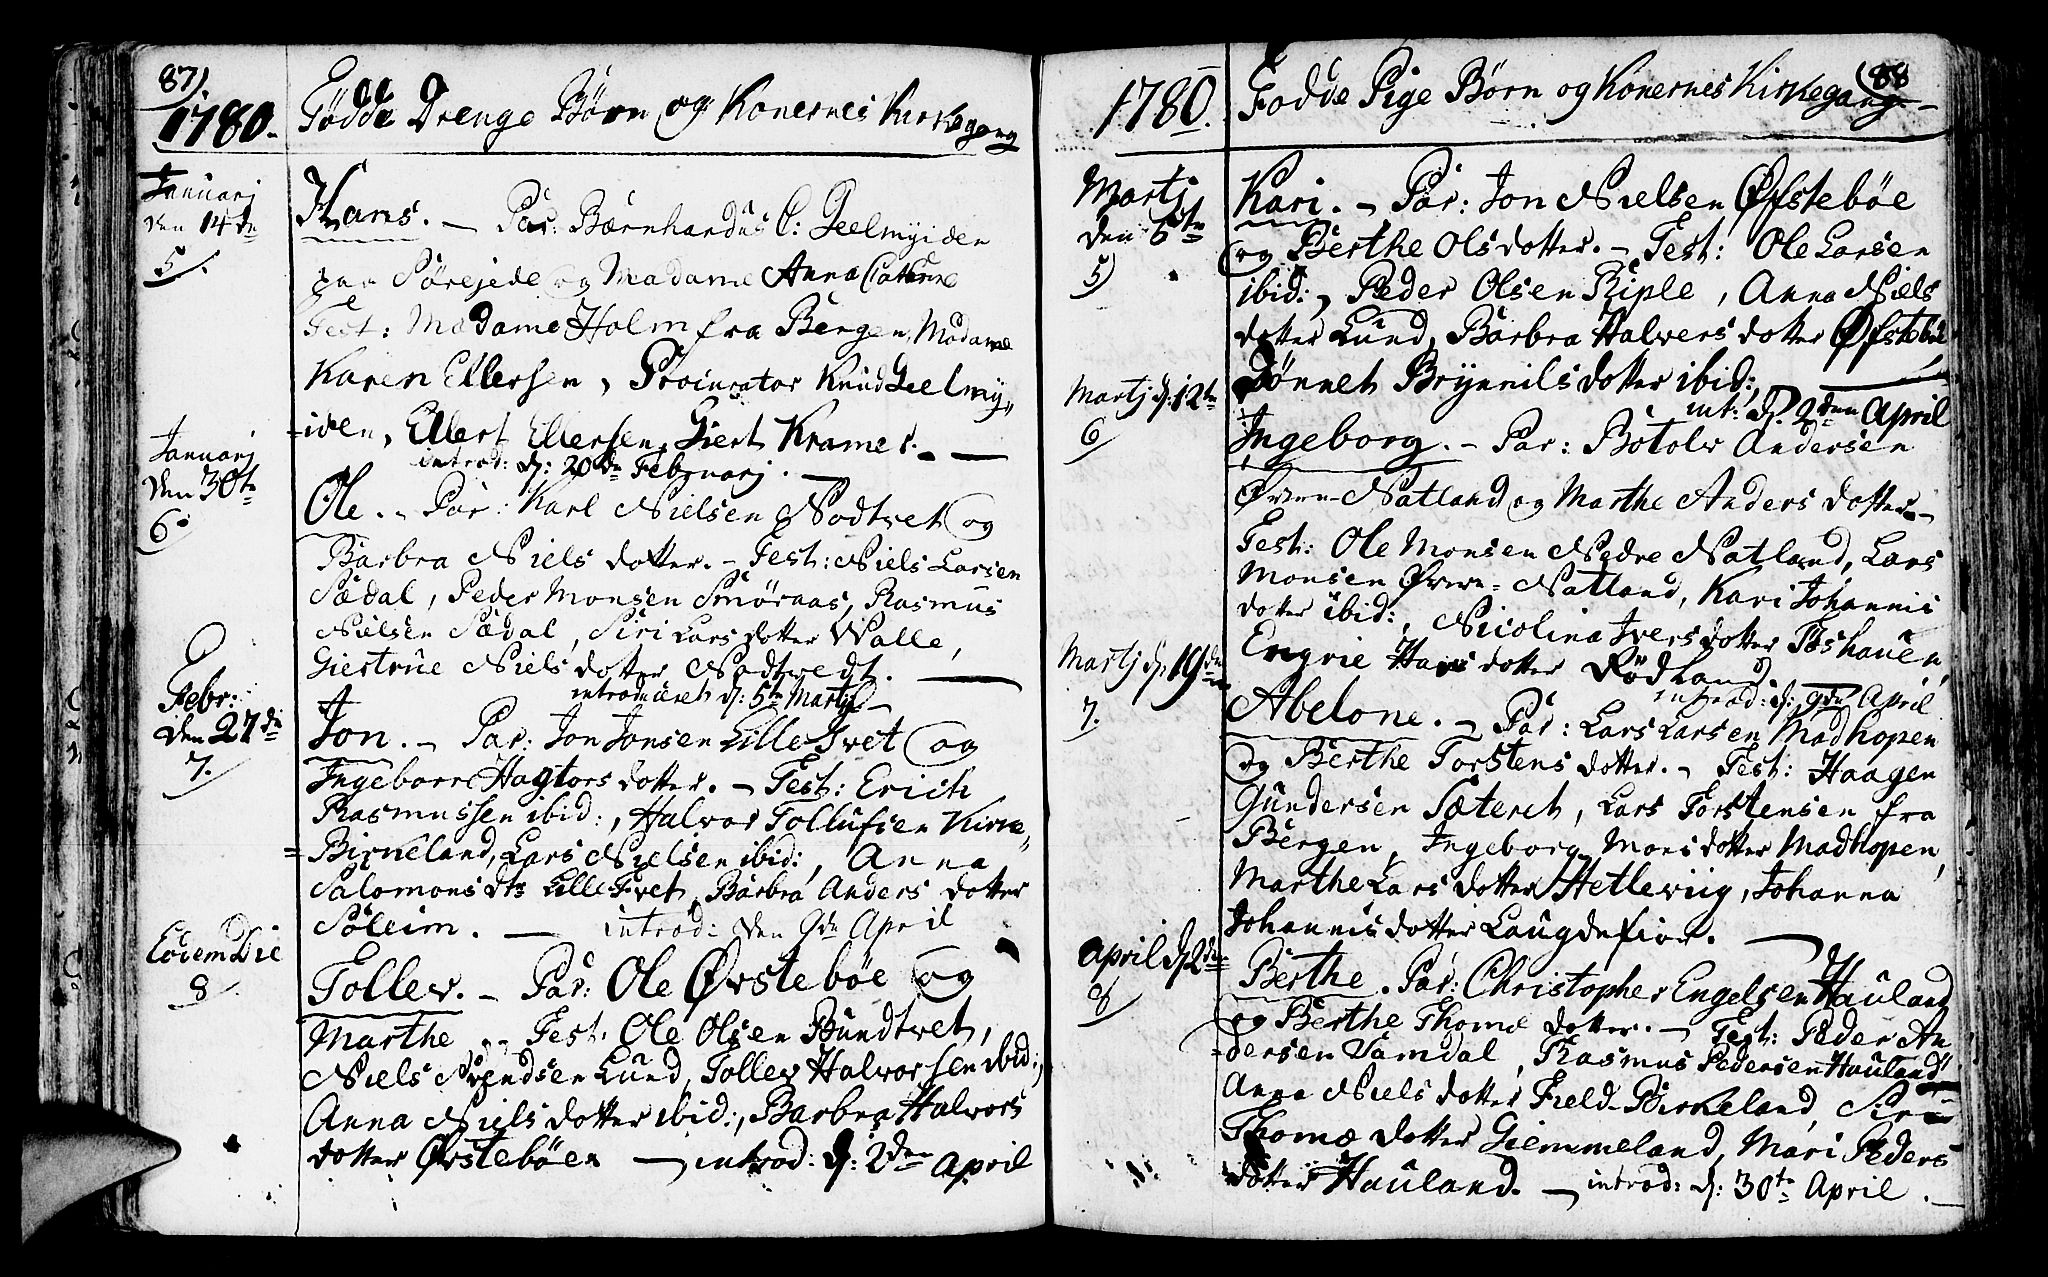 87).
1780. Fødde Drenge Børn og Konernes Kirkegang
Januarj
den 14de
5.
Hans. — Par: Bærnhardus C: Geelmyiden
paa Sørejede og Madame Anna Catarine
Test: Madame Holm fra Bergen, Madame
Karen Ellersen, Procurator Knud Geelmy,,
=iden, Ellert Ellersen, Giert Kramer. —
introd: d: 20de Februarj. —
Januarj
den 30te
6
Ole. — Par: Karl Nielsen Nodtvet og
Barbra Niels dotter. — Test: Niels Larsen
Sædal, Peder Monsen Smøraas, Rasmus
Nielsen Sædal, Siri Lars dotter Walle,
Giestrue Niels dotter Nodtvedt. —
introduceret d: 5te Martj —
Febr:
den 27de
7.
Jon. — Par: Jon Jonsen Lille Tvet og
Ingebor Hagtors dotter. — Test: Erich
Rasmussen ibid:, Halvor Tollufsen Kirke,,
=Birkeland, Lars Nielsen ibid:, Anna
Salomons dtr Lille Tvet, Barbra Anders dotter
Søleim. — introd: den 9de April
Eodem Die
8.
Tollev. — Par: Ole Øvstebøe og
Marthe — Test: Ole Olsen Bundtvet,
Niels Svendsen Lund, Tollev Halvorsen ibid:,
Anna Niels dotter ibid:, Barbra Halvors
dotter Øvstebøen — introd: d: 2den April
88
1780. Fødde Pige Børn og Konernes Kirkegang —
Martj
den 5te
5)
Kari. — Par: Jon Nielsen Øfstebøe
og Berthe Olsdotter. — Test: Ole Larsen
ibid:, Peder Olsen Riple, Anna Niels
dotter Lund, Barbra Halvers dotter Øfstebøe
Jønnet Brynnils dotter ibid:,
int: d. 2den April
Martj d: 12te
6
Ingeborg. — Par: Botolv Andersen
Øvre=Natland og Marthe Anders dotter. —
Test: Ole Monsen Nedre Natland, Lars
Monsen Øvre=Natland, Kari Johannis
dotter ibid:, Nicolina Ivers dotter Pashauen,
Engrie Hans dotter Rødland.
introd: d: 9de April
Martj d: 19de
7.
Abelone. — Par: Lars Larsen Madhopen
og Berthe Torstens dotter. — Test: Haagen
Gundersen Sæteret, Lars Torstensen fra
Bergen, Ingeborg Mons dotter Madhopen,
Marthe Lars dotter Hetleviig, Johanna
Johannis dotter Laugdefior. —
April d: 2de
8
Berthe. Par: Christopher Engelsen Hauland
og Berthe Thomæ dotter. — Test: Peder An
dersen Samdal, Rasmus Pedersen Hauland
Anna Niels dotter Field-Birkeland, Siri
Thomæ dotter Giemmeland, Mari Peders
dotter Hauland. — introd: d: 30te April. —